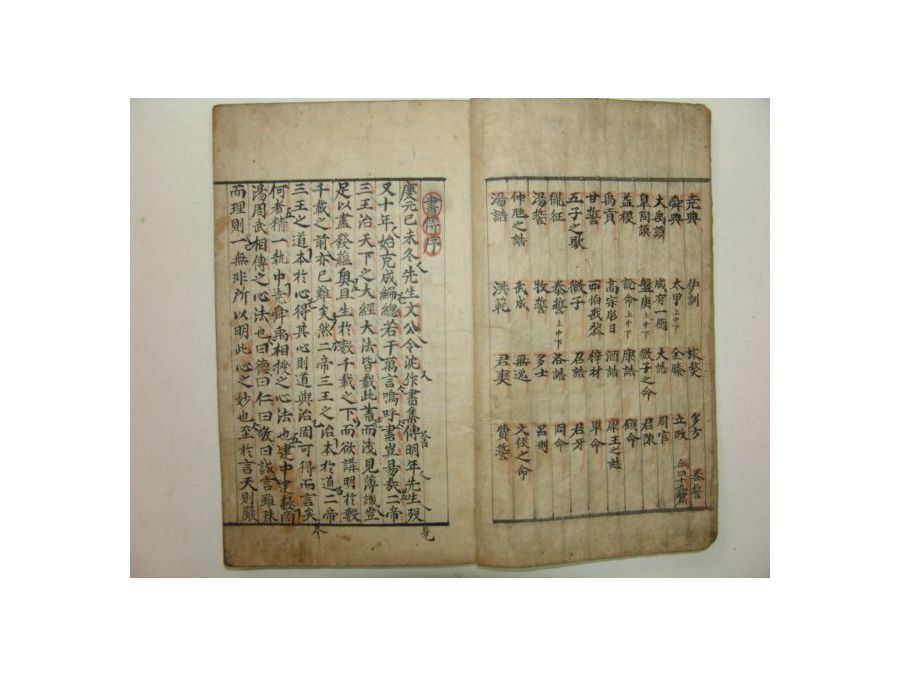 堯典 伊訓 旅獒 多方 秦誓
舜典 太甲上中下 金縢 立政 合四十九篇
大禹謨 咸有一德 大誥 周官
皐陶謨 盤庚上中下 微子之命 君陳
益稷 說命上中下 康誥 顧命
禹貢 高宗肜日 酒誥 康王之誥
甘誓 西伯戡黎 梓材 畢命
五子之歌 微子 召誥 君牙
胤征 泰誓上中下 洛誥 冏命
湯誓 牧誓 多士 呂刑
仲虺之誥 武成 無逸 文侯之命
湯誥 洪範 君奭 費誓
書傳序
慶元己未冬先生文公令沈作書集傳明年先生歿
又十年始克成編總若干萬言嗚呼書豈易哉二帝
三王治天下之大經大法皆載此書而淺見薄識豈
足以盡發蘊奧且生於數千載之下而欲講明於數
千載之前亦已難矣然二帝三王之治本於道二帝
三王之道本於心得其心則道與治固可得而言矣
何者精一執中堯舜禹相授之心法也建中建極商
湯周武相傳之心法也曰德曰仁曰敬曰誠言雖殊
而理則一無非所以明此心之妙也至於言天則嚴